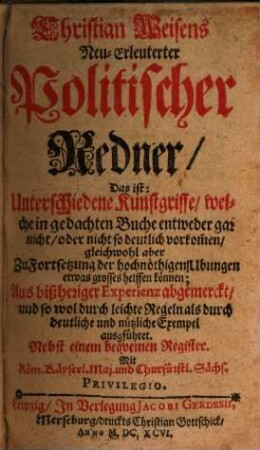 Christian Weisens
Neu-Erleuterter
Politischer
Redner/
Das ist:
Unterschiedene Kunstgriffe/ wel-
che in gedachten Buche entweder gar
nicht/ oder nicht so deutlich vorkom̃en/
gleichwohl aber
Zu Fortsetzung der hochnöthigen Ubungen
etwas grosses helffen können;
Aus bißheriger Experienz abgemerckt/
und so wol durch leichte Regeln als durch
deutliche und nützliche Exempel
ausgführet.
Nebst einem beqvemen Register.
Mit
Röm. Käyserl. Maj. und Churfürstl. Sächs.
PRIVILEGIO.
Leipzig/ In Verlegung JACOBI GERDESII,
Merseburg/ druckts Christian Gottschick/
Anno M, DC, XCVI.